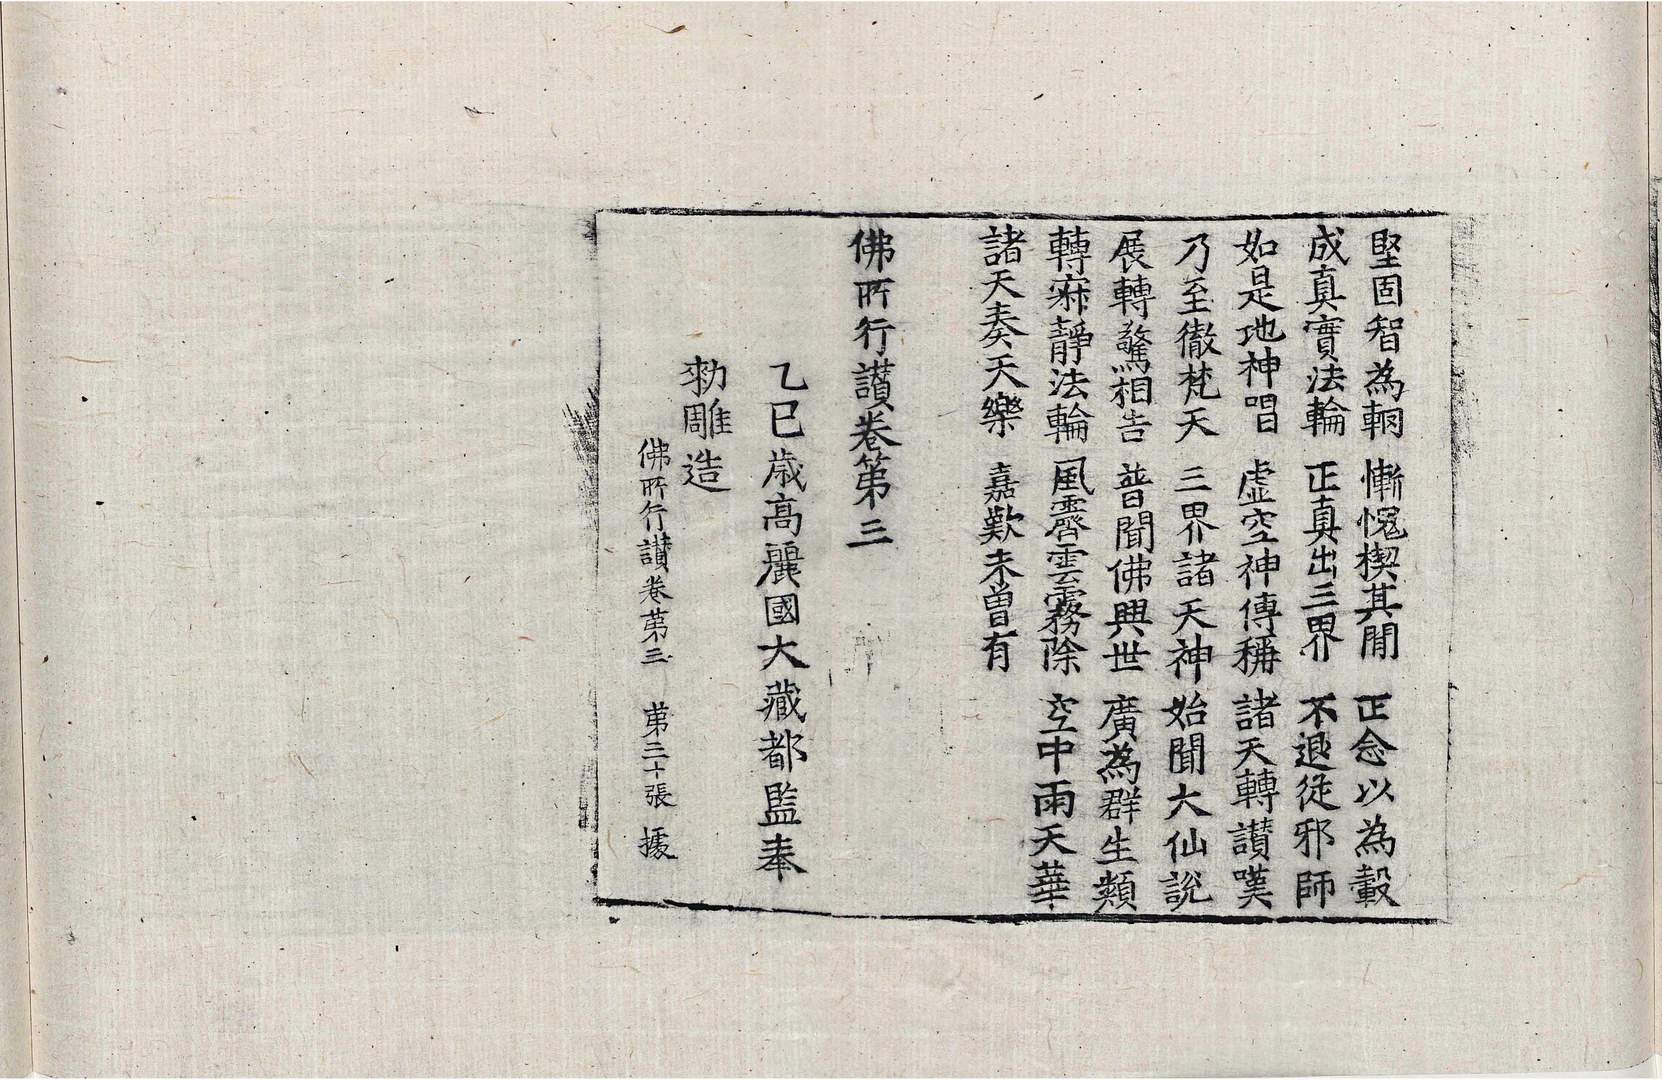 堅固智為輞 慚愧楔其間 正念以為轂
成真實法輪 正真出三界 不退從邪師
如是地神唱 虛空神傳稱 諸天轉讃嘆
乃至徹梵天 三界諸天神 始聞大仙說
展轉驚相告 普聞佛興世 廣為群生類
轉寂靜法輪 風霽雲霧除 空中雨天華
諸天奏天樂 嘉歎未曾有
佛所行讃卷第三
乙巳歳高麗國大藏都監奉
勑雕造
佛所行讃卷第三 第三十張 據